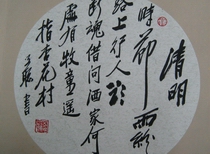 清明
時節雨紛
路上行人欲
斷魂借問酒家何
處有牧童遥
指杏花村
書